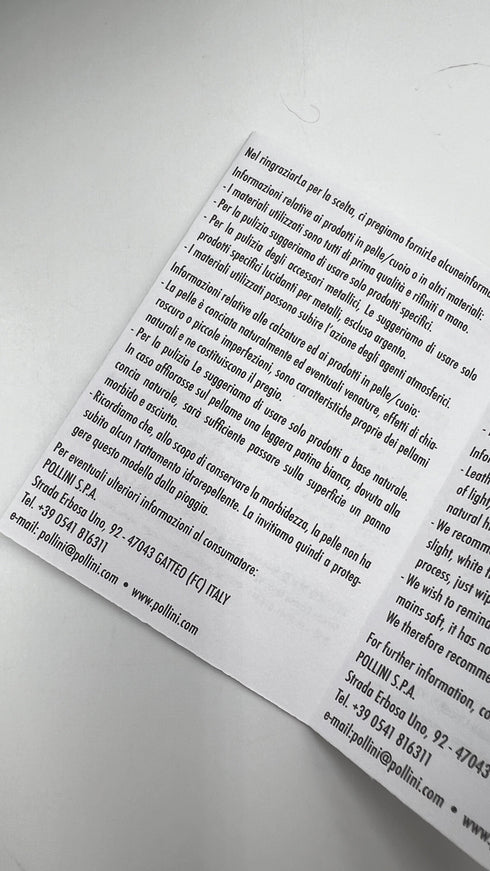 Nel ringraziarLa per la scelta, ci pregiamo fornirLe alcuneinform
Informazioni relative ai prodotti in pelle/cuoio o in altri materiali:
- I materiali utilizzati sono tutti di prima qualità e rifiniti a mano.
- Per la pulizia suggeriamo di usare solo prodotti specifici.
- Per la pulizia degli accessori metallici, Le suggeriamo di usare solo
prodotti specifici lucidanti per metalli, escluso argento.
- I materiali utilizzati possono subire l'azione degli agenti atmosferici.
Informazioni relative alle calzature ed ai prodotti in pelle/cuoio:
- La pelle è conciata naturalmente ed eventuali venature, effetti di chia-
roscuro o piccole imperfezioni, sono caratteristiche proprie dei pellami
naturali e ne costituiscono il pregio.
- Per la pulizia Le suggeriamo di usare solo prodotti a base naturale.
In caso affiorasse sul pellame una leggera patina bianca, dovuta alla
concia naturale, sarà sufficiente passare sulla superficie un panno
morbido e asciutto.
- Ricordiamo che, allo scopo di conservare la morbidezza, la pelle non ha
subito alcun trattamento idrorepellente. La invitiamo quindi a proteg-
gere questo modello dalla pioggia.
Per eventuali ulteriori informazioni al consumatore:
POLLINI S.P.A.
Strada Erbosa Uno, 92 - 47043 GATTEO (FC) ITALY
Tel. +39 0541 816311
e-mail: pollini@pollini.com • www.pollini.com
Info
- Leath
of light,
natural h
- We recomm
slight, white
process, just wip
- We wish to remind
mains soft, it has no
We therefore recomme
For further information, co
POLLINI S.P.A.
Strada Erbosa Uno, 92 - 47043
Tel. +39 0541 816311
e-mail:pollini@pollini.com • www.